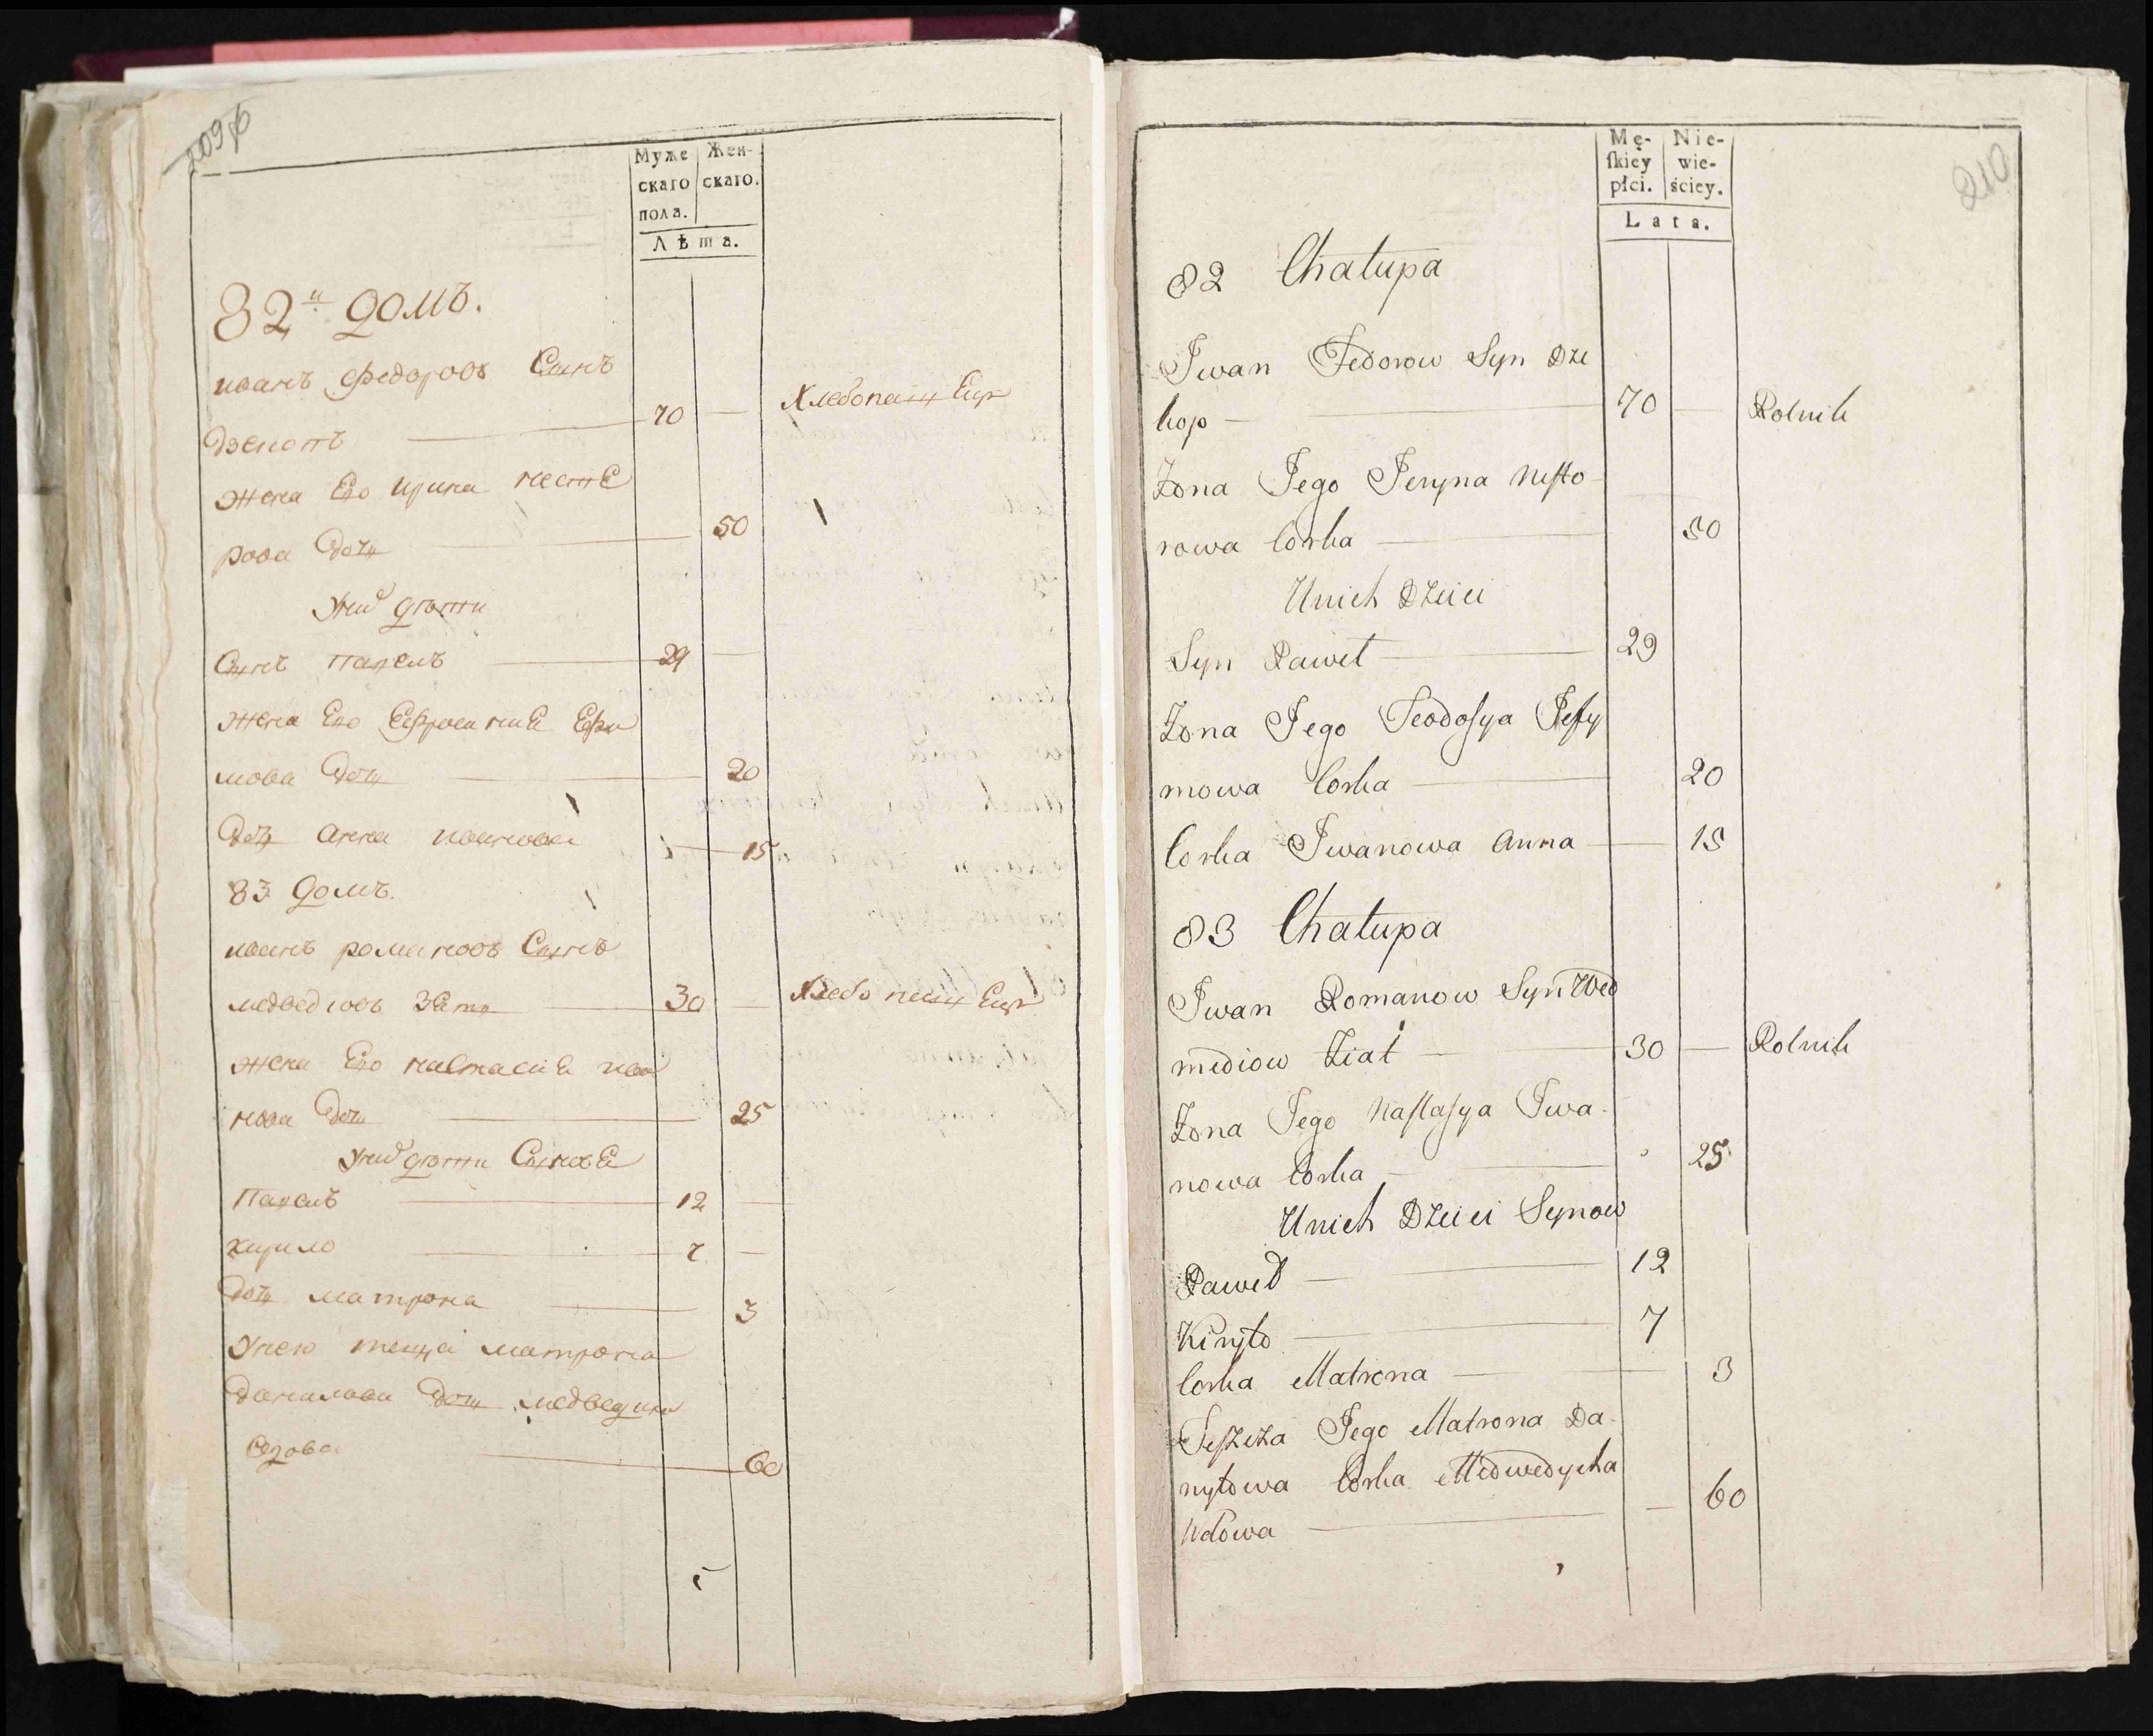 209об
Муже
скаго
пола.
Жен-
скаго.
Лѣта.
82й домъ.
иванъ федоровъ Сынъ
70 — Хлебопашецъ
жена Его ирина несте
рова Дочь — 50
униѣ дѣти
Сынъ павелъ — 29 —
жена Его Ефросиние Ефи
мова Дочь — 20
Дочь анна иванова — 15
83 домъ.
иванъ романовъ Сынъ
медведювъ Зять — 30 — Хлебопашецъ
жена Его настасие ива
нова Дочь — 25
дѣти Синове
Павелъ — 12 —
кирило — 7 —
Дочь матрона — 3
унею теща матрона
данилова Дочь медведиха
вдова — 60
210
Mę-
ſkiey
płci.
Nie-
wie-
ściey.
Lata.
82 Chałupa
Jwan Fedorow Syn Dze
kop — 70 — Rolnik
Żona Jego Jeryna Nesto
rowa Corka — 50
Unich Dzieci
Syn Paweł — 29
Żona Jego Teodosya Jefy
mowa Corka — 20
Corka Jwanowa Anna — 15
83 Chałupa
Jwan Romanow Syn
Ziat — 30 — Rolnik
Żona Jego Nastasya Jwa-
nowa Corka — 25
Unich Dzieci Synow
Paweł — 12
Kiryło — 7
Corka Matrona — 3
Teszcza Jego Matrona Da-
nyłowa Corka Medwedycha
Wdowa — 60